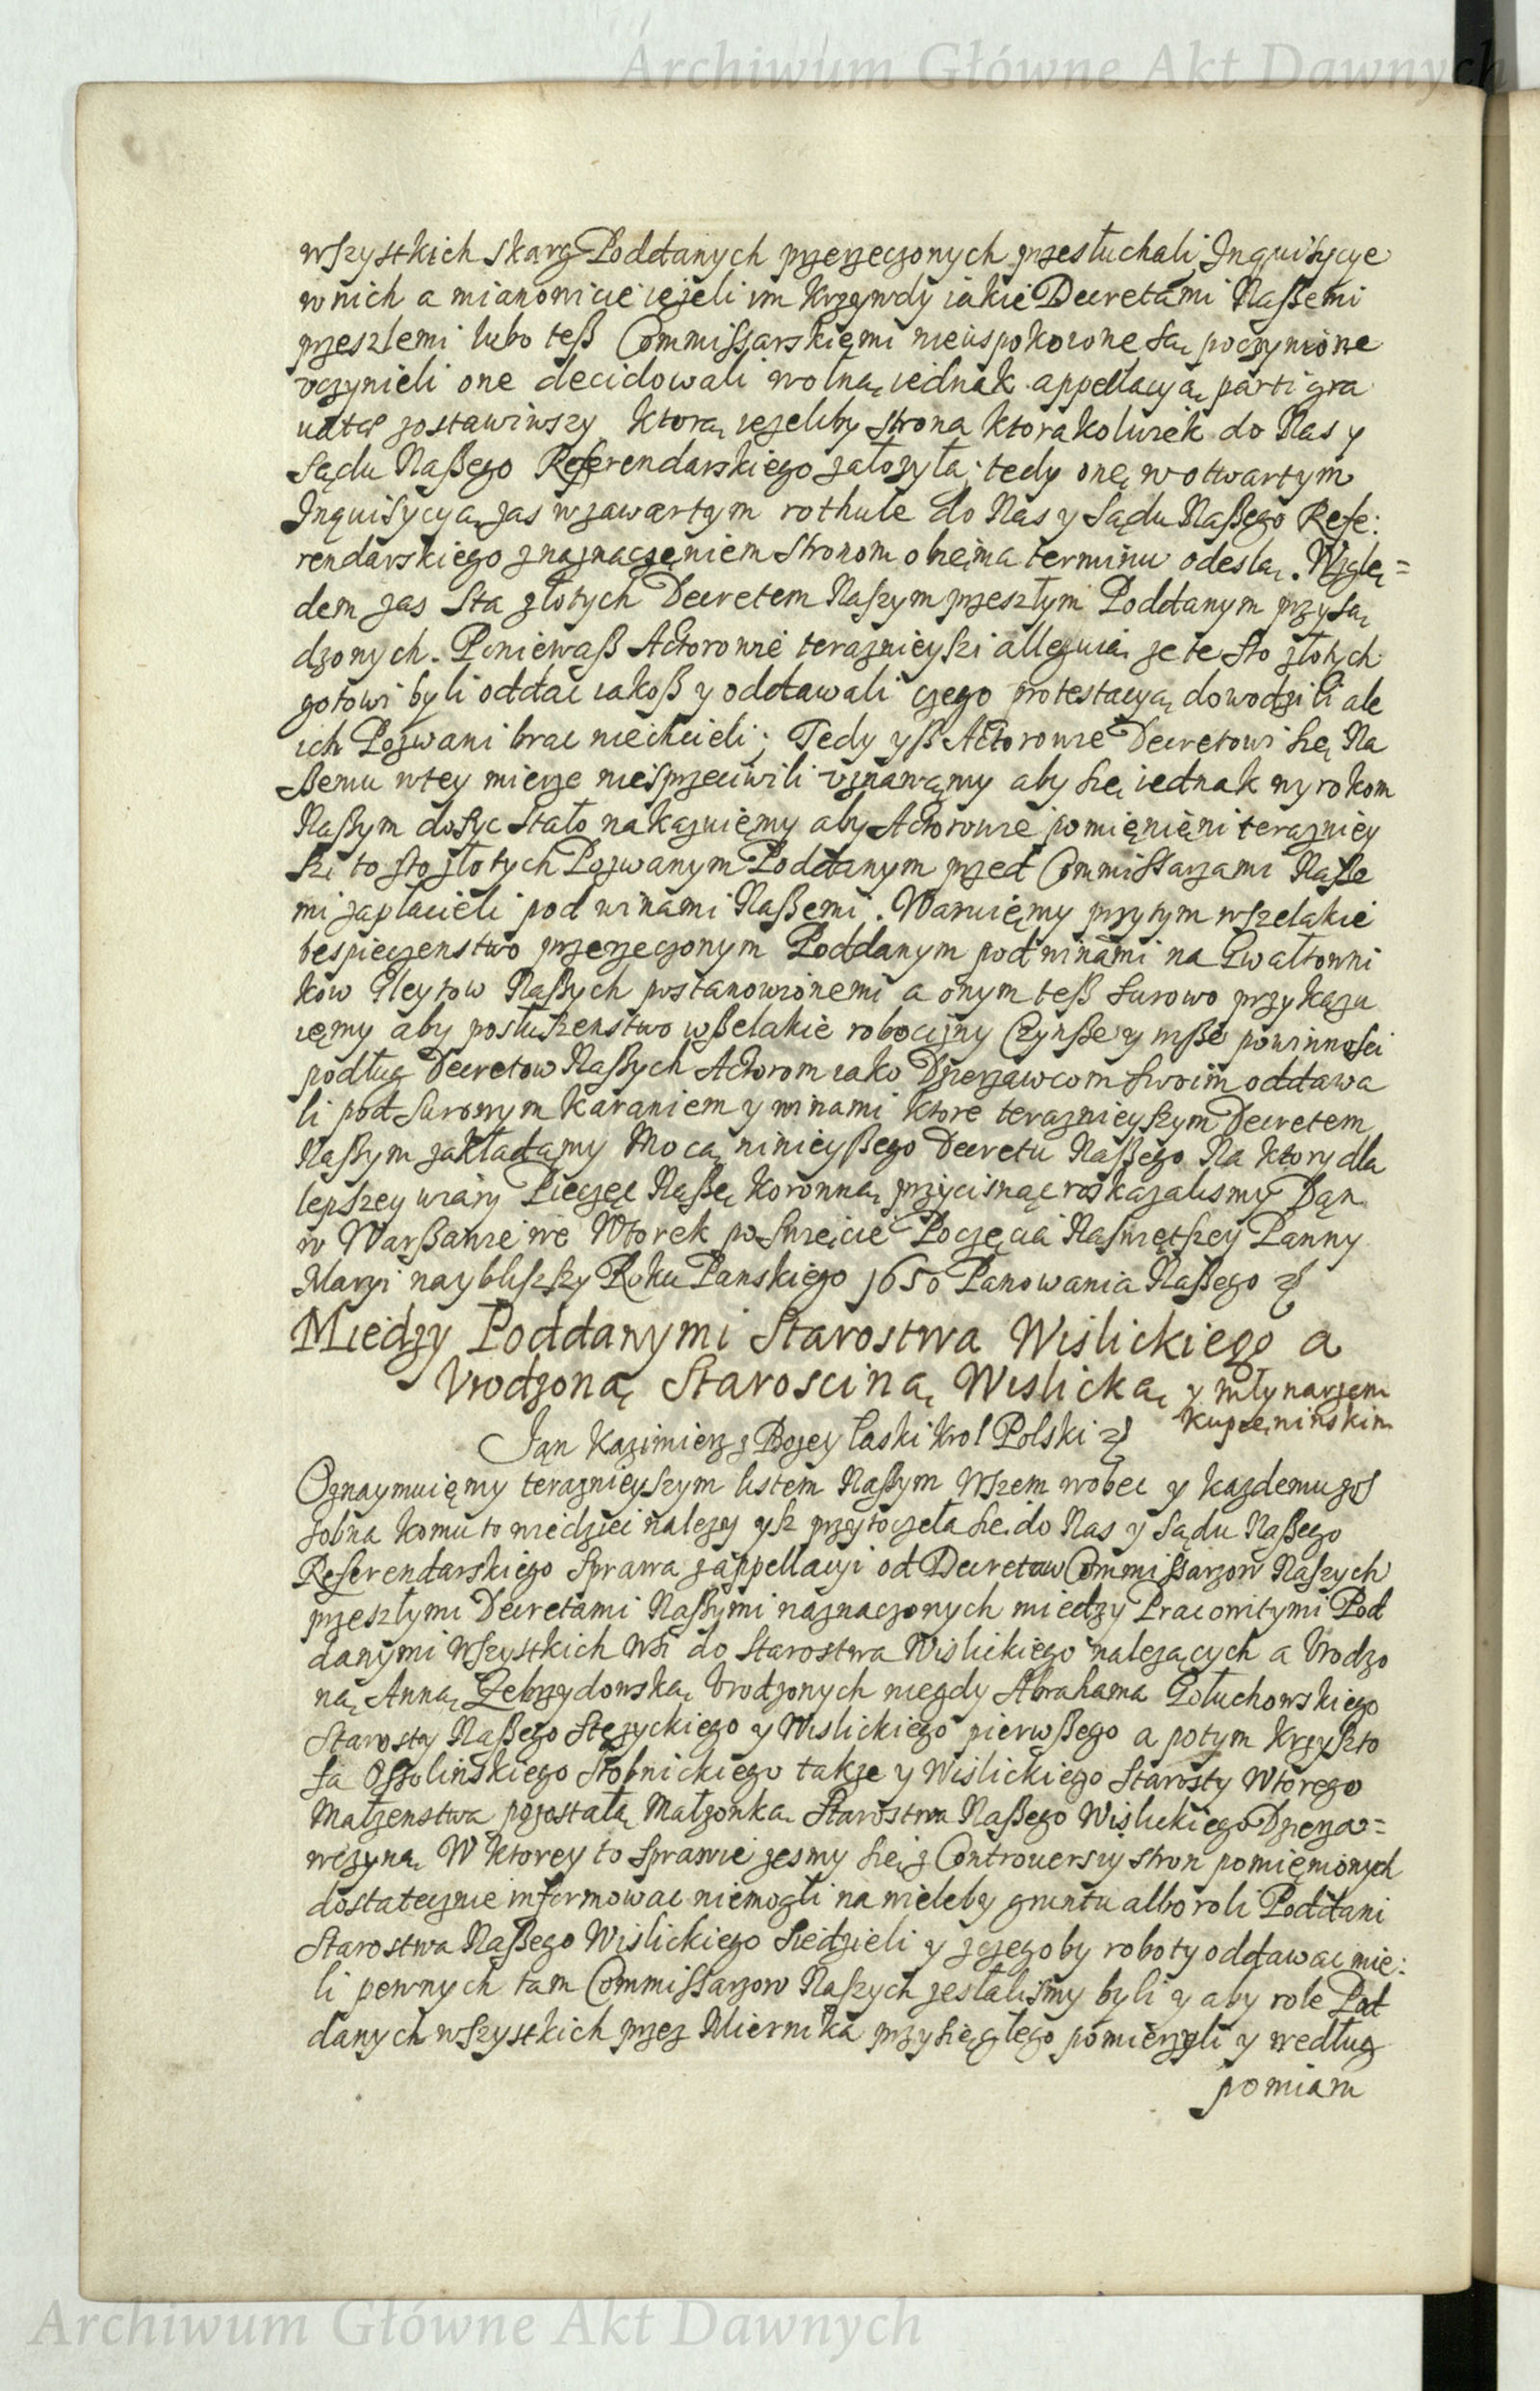 Archiwum Główne Akt Dawnych
wszystkich skarg Poddanych przerzeczonych przesłuchali Inquisycye
w nich a mianowicie ieżeli im krzywdy iakie Decretami Naßemi
przeszlemi lubo teß Commissarskiemi nieuspokoione są poczynione
vczynieli one decidowali wolną iednak appellacyą parti gra
uatæ zostawiwszy którą ieżeliby strona ktorakolwiek do Nas y
Sądu Naßego Referendarskiego założyła; tedy onę w otwartym
Inquisycyą zas w zawartym rothule do Nas y Sądu Naßego Refe:
rendarskiego z naznaczeniem stronom obiema terminu odeslą. Wzglę=
dem zas sta złotych Decretem Naszym przeszłym Poddanym przysą
dzonych. Poniewaß Actorowie teraznieyszi alleguią że te sto złotych
gotowi byli oddac iakoß y oddawali czego protestacyą dowodzili ale
ich Pozwani brac niechcieli; Tedy yß Actorowie Decretowi się Na
ßemu w tey mierze niesprzeciwili vznawamy aby się iednak wyrokom
Naßym dosyc stało nakazuięmy aby Actorowie pomięnięni teraźniey
szi to sto złotych Pozwanym Poddanym przed Commissarzami Naße
mi zapłacieli pod winami Naßemi. Waruięmy przytym wszelakie
bespieczenstwo przerzeczonym Poddanym pod winami na Gwałtowni
kow Gleytow Naßych postanowionemi a onym teß surowo przykazu
ięmy aby posłuszenstwo wßelakie robocizny Czynße y inße powinnosci
podług Decretow Naßych Actorom iako Dzierzawcom swoim oddawa
li pod surowym karaniem y winami ktore teraznieyszym Decretem
Naßym zakładamy Mocą ninieyßego Decretu Naßego Na ktory dla
lepszey wiary Pieczęc Naßę Koronną przycisnąc roskazalismy Dan
w Warßawie we Wtorek po Swięcie Poczęcia Naswiętszey Panny
Maryi naybliszszy Roku Panskiego 1650 Panowania Naßego
Miedzy Poddanymi Starostwa Wiślickiego a
Vrodzoną Starosciną Wislicką y młynarzem
kupienińskim
Jan Kazimierz z Bozey łaski Krol Polski
Oznaymuięmy teraznieyszym listem Naßym Wszem wobec y kazdemu zos
sobna komu to wiedziec nalezy ysz przytoczeła się do Nas y Sądu Naßego
Referendarskiego Sprawa z appellacyi od Decretow Commissarzow Naszych
przeszłymi Decretami Naßymi naznaczonych miedzy Pracowitymi Pod
danymi wszystkich wsi do Starostwa Wislickiego należących a Vrodzo
ną Anną Zebrzydowską Vrodzonych niegdy Abrahama Gołuchowskiego
Starosty Naßego Stęzyckiego y Wislickiego pierwßego a potym Krzyszto
fa Ossolinskiego Stobnickiego takze y Wislickiego Starosty Wtorego
Małzenstwa pozostałą Małzonką Starostwa Naßego Wislickiego Dzierza=
wczyną W ktorey to sprawie zesmy się z Controuersiy stron pomięnionych
dostatecznie informowac niemogli na wieleby gruntu albo roli Poddani
Starostwa Naßego Wislickiego Siedzieli y z czegoby roboty oddawac mie:
li pewnych tam Commissarzow Naszych zesłalismy byli y aby role Pod
danych wszystkich przez Miernika przysięgłego pomierzyli y według
pomiaru
Archiwum Główne Akt Dawnych